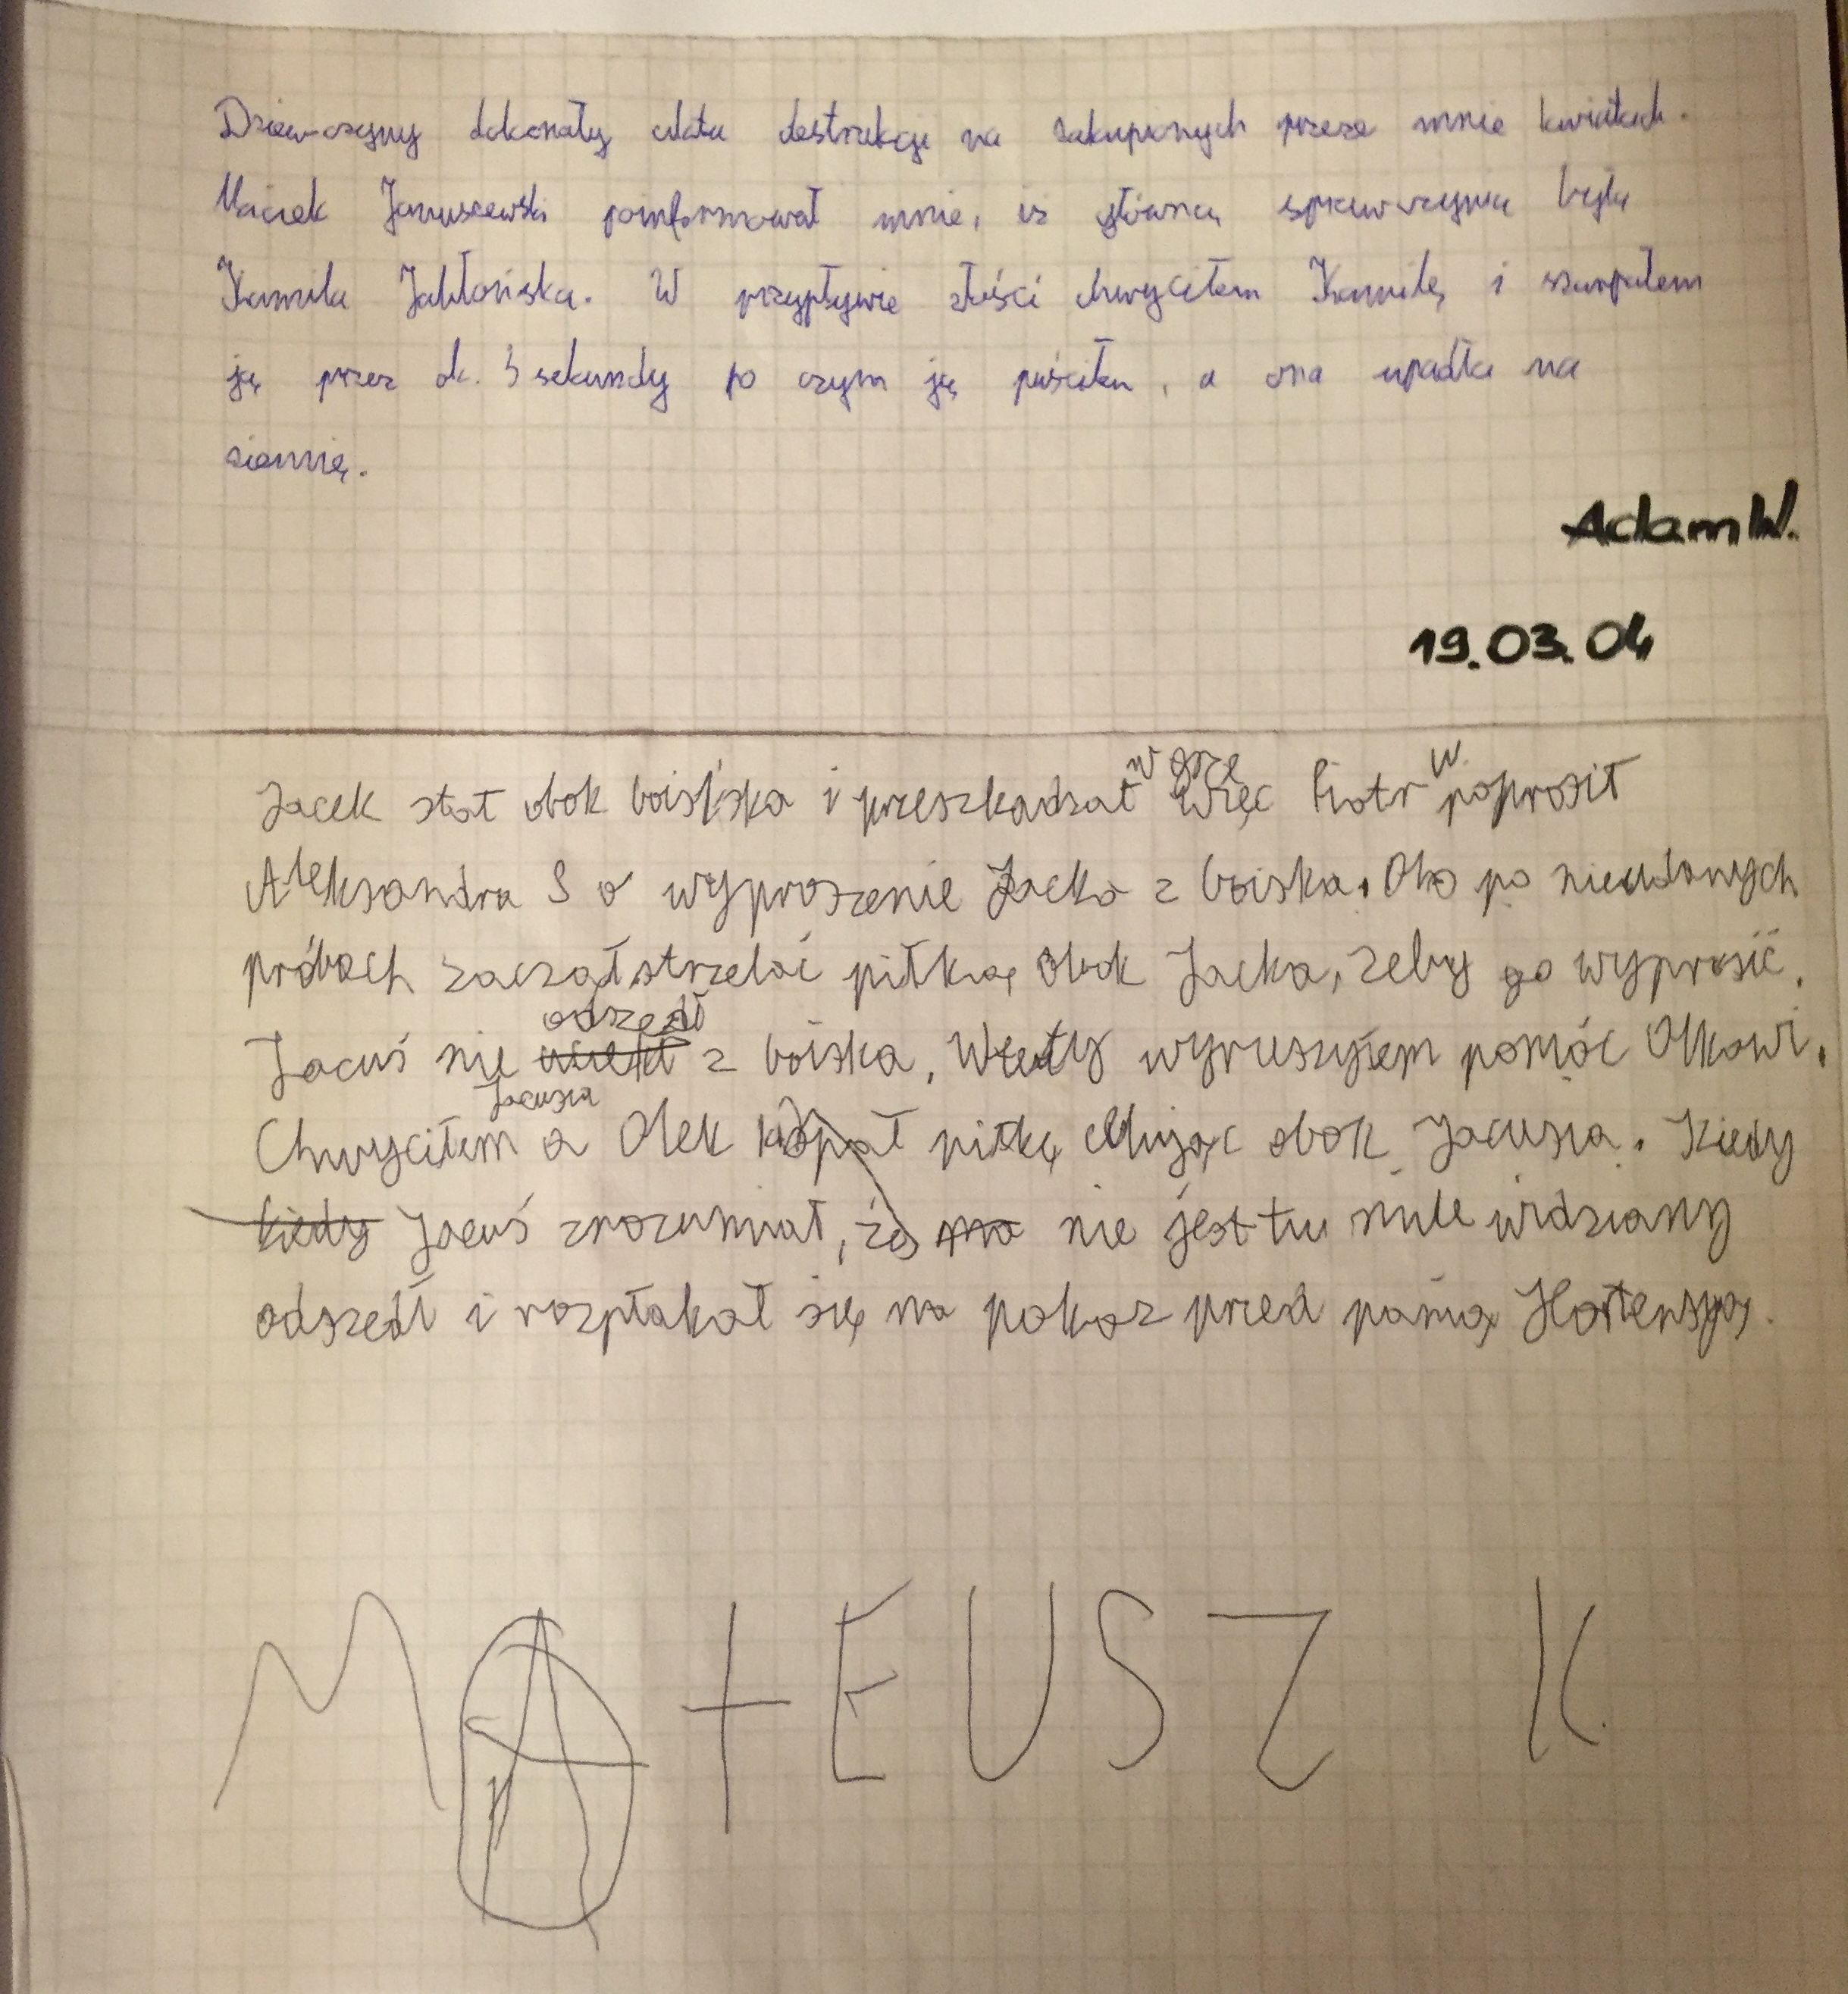 Dziewczyny dokonały aktu destrukcji na zakupionych przeze mnie kwiatach.
Maciek Januszewski poinformował mnie, iż główną sprawczynią była
Kamila Jabłońska. W przypływie złości chwyciłem Kamilę i szarpałem
ją przez ok. 3 sekundy po czym ją puściłem, a ona upadła na
ziemię.
Adam W.
19.03.04
w grę W.
Jacek stał obok boiska i przeszkadzał więc Piotr poprosił
Aleksandra S o wyproszenie Jacka z boiska. Olo po nieudanych
próbach zaczął strzelać piłką obok Jacka, żeby go wyprosić.
odszedł
Jacuś nie uciekł z boiska, Wtedy wyruszyłem pomóc Olkowi.
Jacusia
Chwyciłem a Olek kopał piłkę celując obok Jacusia. Kiedy
kiedy Jacuś zrozumiał, że nie jest tu mile widziany
odszedł i rozpłakał się na pokaz przed panią Hortensją.
MATEUSZ K.